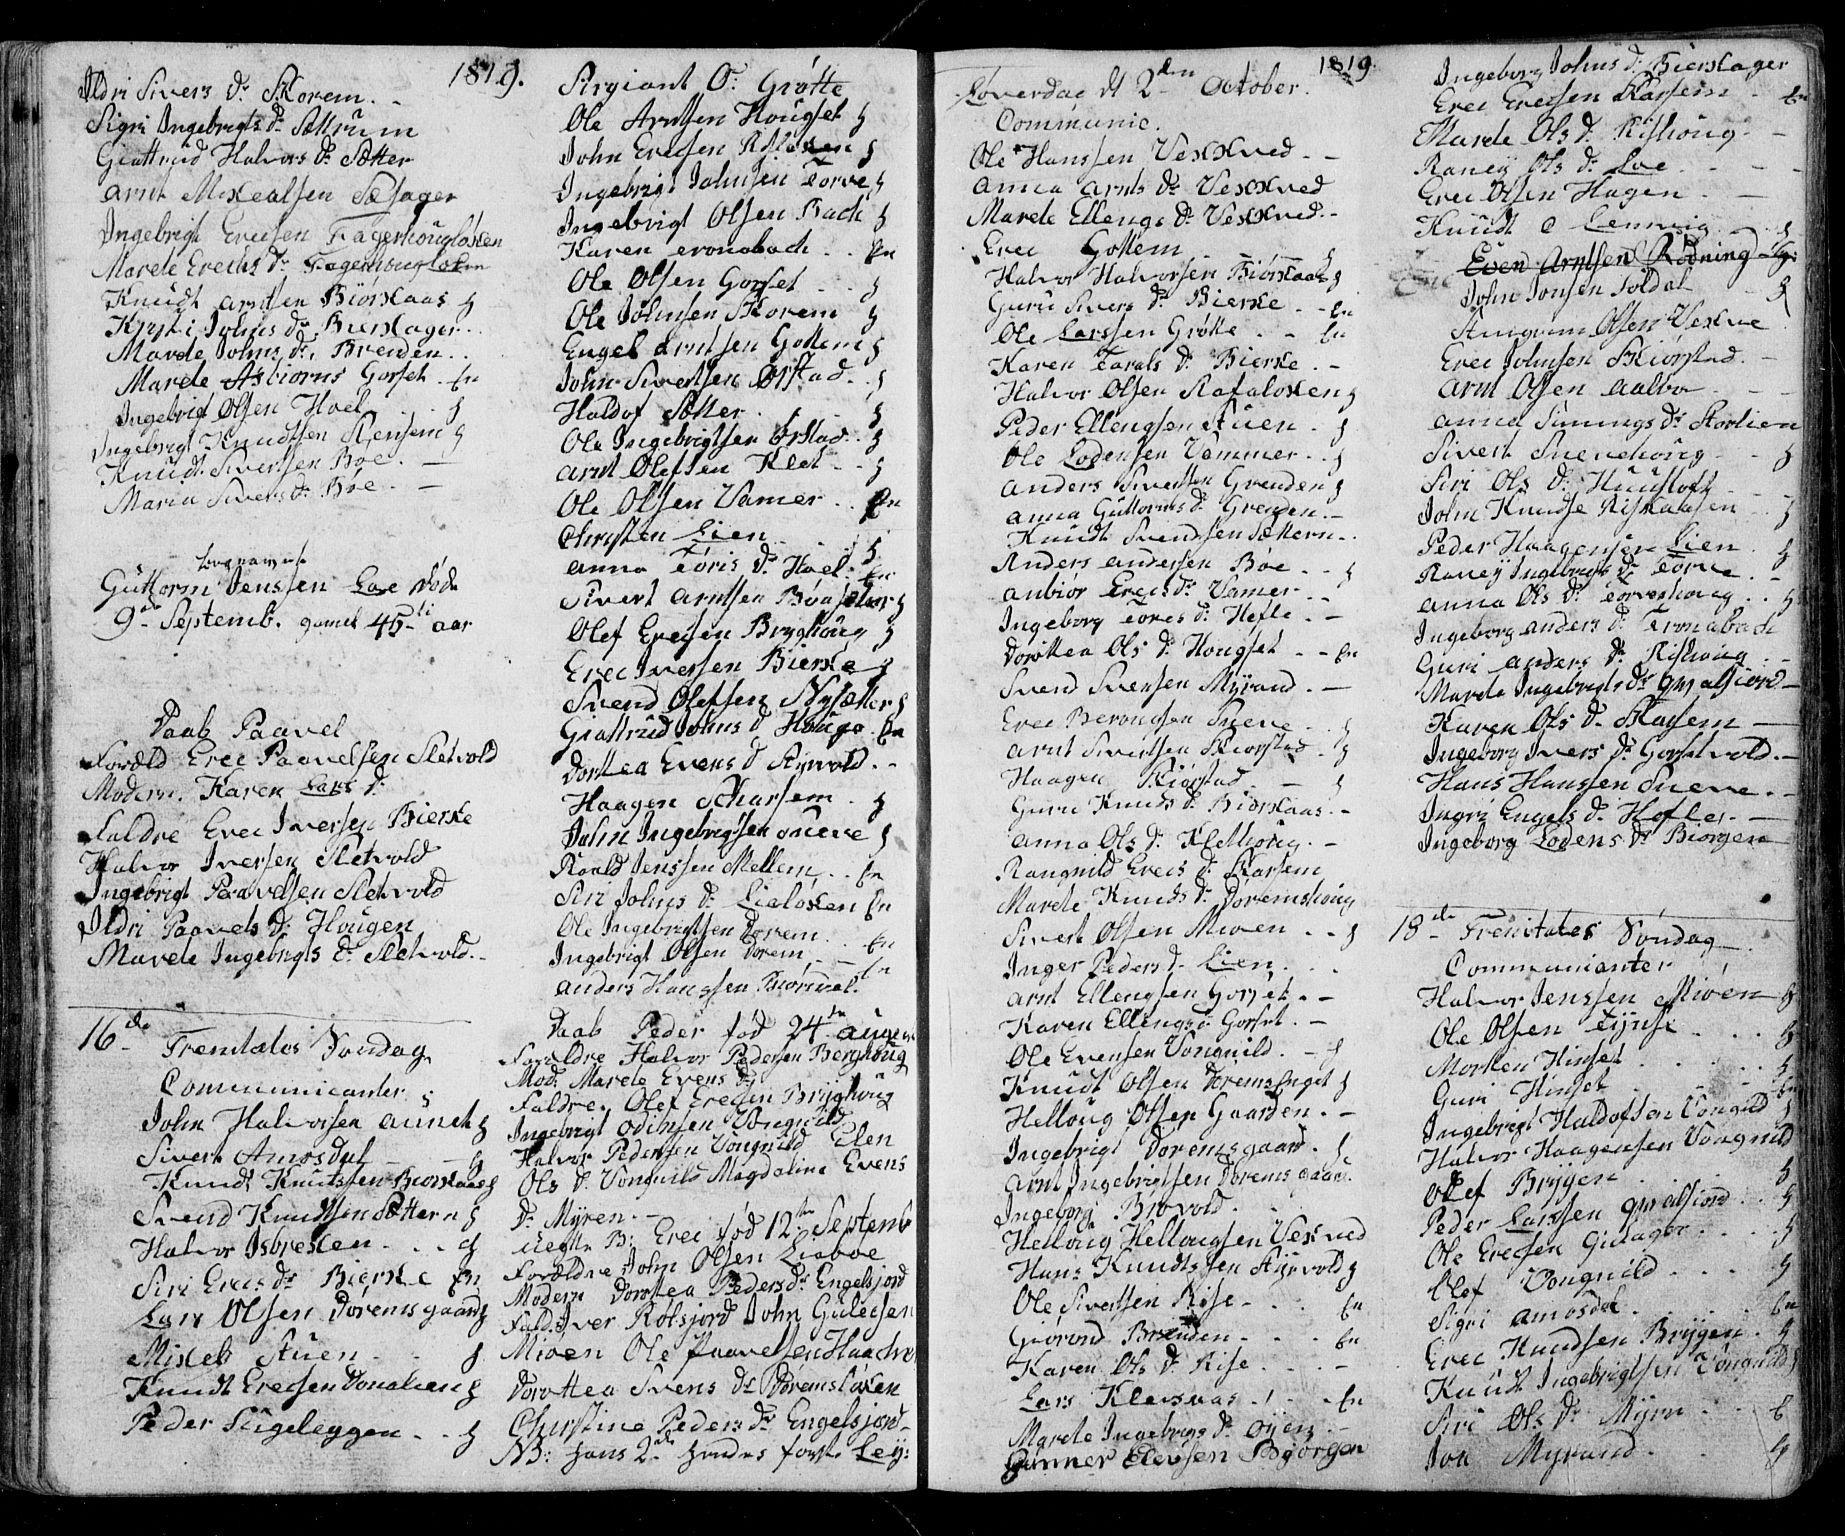 1819.
Ildri Sivers Dr Skorem.
Sigri Ingebrigts Dr Sættrum
Giattrud Halvors Dr Sætter
Arnt Mikealsen Sæsager
Ingebrigt Erecsen Fagerhougløken
Marete Erechs Dr Fagerhougløken
Knudt Arntsen Biørkaas
Johns Dr Bierkager
Marete Johns Dr Brenden
Marete Asbiorns Gorset En
Ingebrigt Olsen Hoel
Ingebrigt Knudtsen Stensem
Knudt Sivertsen Boe
Maria Sivers Dr Boe
Guttorm Jenssen Loe døde
9de Septemb. gamel 45 aar
Daab Paavel
Foræld Erec Paavelsen Sletvold
Modern Karen Lars Dr
Faldre Erec Iversen Bierke
Halvor Iversen Sletvold
Ingebrigt Paavelsen Sletvold
Ildri Paavels Dr Hougen
Marete Ingebrigts Dr Sletvold
16de Trenitates Søndag
Communicanter
John Halvorsen Aunet
Sivert Amosdal
Knudt Knutssen Biorkaas
Svend Knudtsen Sættern
Halvor Isbrekken
Siri Erecs Dr Bierke En
Lars Olsen Doremsgaard
Mikel Stuen
Knudt Erecsen Donalien
Peder Stigeleggen
Sergiant O: Grøtte
Ole Arntsen Hougset
John Erecsen Røløkken
Ingebrigt Johnsen Torve
Ingebrigt Olsen Bach
Karen Tronabach En
Ole Olsen Gorset
Ole Johnsen Skorem
Engel Arntsen Gottem
John Sivertsen Ørstad
Haldof Sætter
Ole Ingebrigtsen Ørstad
Arnt Olefsen Klet
Ole Olsen Vamer En
Christen Lien
Anna Toris Dr Hoel En
Sivert Arntsen
Olef Erecsen Bryghoug
Erec Iversen Bierke
Svend Olefsen Nysætter
Giattrud Johns D Houge En
Dorttea Evens D Styrvold
Haagen Skarsem
John Ingebrigtsen Sneve
Roald Jenssen Mellem En
Siri Johns Dr Lieløkken En
Ole Ingebrigtsen Dorem
Ingebrigt Olsen Dorem En
Anders Hanssen
Daab Peder fød 24de
Forældre Halvor Pedersen Berghoug
Mod: Marete Evens Dr
Faldre. Olef Erecsen Bryghoug
Ingebrigt Odinsen Vongnild
Halvor Pedersen Vongnild Elen
Ols D: Vongnild Magdalina Evens
Dr Myren
uegte B: Erec fød 12te Septemb
Forældre John Olsen Lieboe
Modern Dorottea Peders Dr Engelsjord
Fald: Iver Rølsjord John Gulecsen
Mioen Ole Paavelsen
Dorottea Svens Dr Doremsløkken
Christine Peders Dr Engelsjord
NB: hans 2de hendes første Ley:
1819.
Løverdag d 2den October.
Communic.
Ole Hanssen Vekkved
Anna Arnts Dr Vekkved
Marete Ellengs Dr Vekkved
Erec Gottem
Halvor Halvorsen Biørkaas
Guru Sivers Dr Bierke En
Ole Larssen Grøtte En
Karen Tarals Dr Bierke
Halvor Olsen Stafaløkken
Peder Ellengsen Stuen
Ole Lodensen Vammer
Anders Sivertsen Grenden
Anna Guttorms Dr Grenden
Knudt Svendsen Sættern
Anders Andersen Boe
Anbiør Erecs Dr Vamer
Ingeborg Tores Dr Hefle
Dorottea Ols Dr Hougset En
Svend Svensen Myrand
Erec Berongsen Sneve
Arnt Sivertsen Skiorstad
Haagen Skiørstad
Guru Knuds Dr Biørkaas
Anna Ols Dr Kletthoug
Rangnild Erecs Dr Skarsem
Marete Knuds Dr Doremshoug
Sivert Olsen Mioen
Inger Peders Dr Lien
Arnt Ellengsen Gorset
Karen Ellengs Dr Gorset
Ole Evensen Vongnild
Knudt Olsen Doremsenget
Helloug Olsen Gaarden
Ingebrigt Doremsgaard
Arnt Ingebrigtsen Doremsgaard
Ingeborg Biøvold
Helloug Hellougsen Vekved
Hans Knudtssen Styrvold
Ole Sivertsen Rise En
Giørond Brænden En
Karen Ols Dr Rise
Lars Klevsaas En
Marete Ingebrigts Dr Øyen
Gunner Elevsen Bjørgen
Ingeborg Johns Dr Bierkager
Erec Erecsen Skarsem En
Marete Ols Dr Rishoug
Raney Ols Dr Loe
Erec Olsen Hagen
Knudt O Lennvig
Even Arntsen Rodning
John Jonsen Soldat
Olsen Vekve
Erec Johnsen Skiørstad
Arnt Olsen Aalbo
Anna Simings Dr Storlien
Sivert Snevehoug
Siri Ols Dr Huusloft
John Knudse Riskaasen
Peder Haagensen Lien
Raney Ingebrigts Dr Torve
Anna Ols Dr Torveshoug
Ingeborg Anders Dr Tronabach
Guri Anders Dr Rishoug
Marete Ingebrigts Dr Qvalsiord
Karen Ols Dr Skarsem
Ingeborg Ivers Dr Gorsetvold
Hans Hanssen Sneve
Ingri Engels Dr Hefle
Ingeborg Lodens Dr Biorgen
18de Trenitates Søndag
Communicanter
Halvor Jenssen Mioen
Ole Olsen Tynse
Morten Hinset
Guri Hinset En
Ingebrigt Haldofsen Vongnild
Halvor Haagensen Vongnild
Olef Bryggen
Peder Larssen Qvalsiord
Ole Erecsen Gulager
Olef Vongnild
Sigri Amosdal En
Erec Knudsen Bryggen
Knudt Ingebrigtsen Vongnild
Siri Ols Dr Myrn E
Jon Myrand